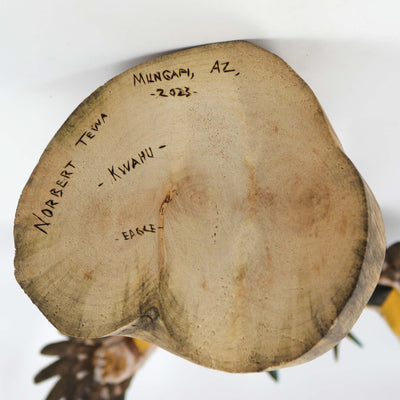 MUNGAPI, AZ,
-2023-
NORBERT TEWA
- KWAHU -
- EAGLE -